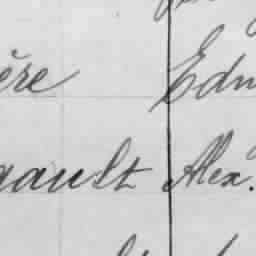 ère Edm
gault Alex.